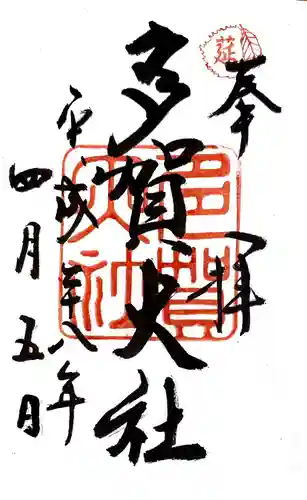 奉拝
多賀大社
平成年八年
四月五日
多賀
大社
莚